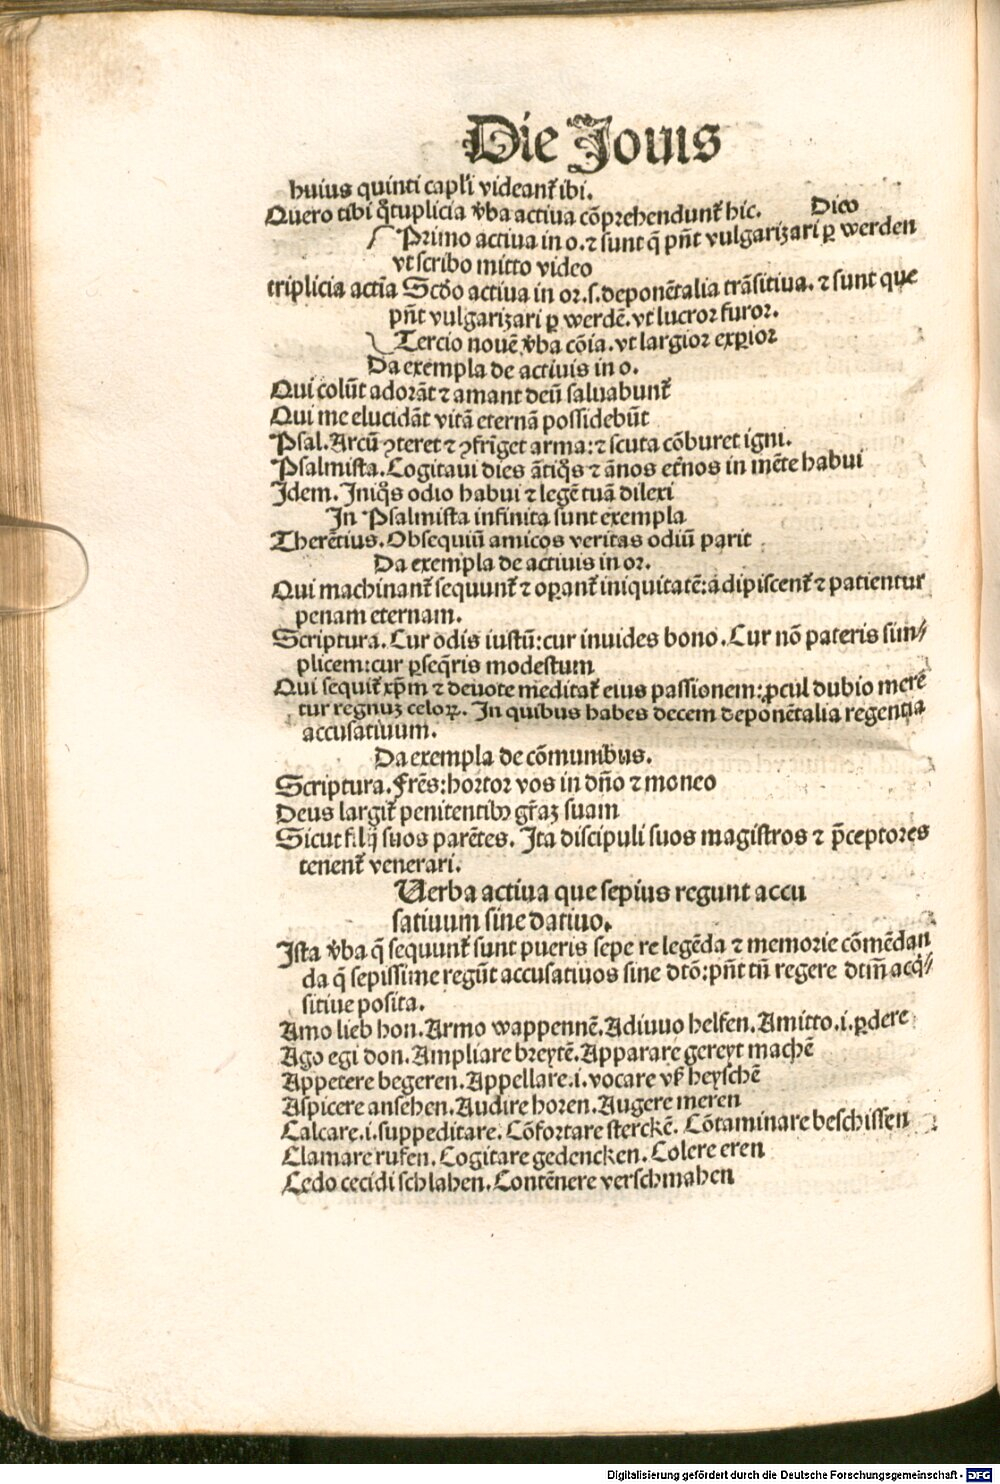 Die Jouis
huius quinti capl̓i videant᷑ ibi.
Quero tibi q̊tuplicia v̓ba actiua cõprehendunt᷑ hic. Dico
Primo actiua in o. ⁊ sunt q̃ pñt vulgarizari ꝑ werden
vt scribo mitto video
triplicia actĩa Scd̓o actiua in or .s. deponẽtalia trãsitiua. ⁊ sunt que
pñt vulgarizari ꝑ werdẽ. vt lucror furor.
Tercio nouẽ v̓ba cõia. vt largior exꝑior
Da exempla de actiuis in o.
Qui colũt adorãt ⁊ amant deũ saluabunt᷑
Qui me elucidãt vitã eternã possidebũt
Psal. Arcũ ꝯteret ⁊ ꝯfrĩget arma: ⁊ scuta cõburet igni.
Psalmista. Cogitaui dies ãtiq̊s ⁊ ãnos et̓nos in mẽte habui
Idem. Iniq̊s odio habui ⁊ legẽ tuã dilexi
In Psalmista infinita sunt exempla
Therẽtius. Obsequiũ amicos veritas odiũ parit
Da exempla de actiuis in or.
Qui machinant᷑ sequunt᷑ ⁊ oꝑant᷑ iniquitatẽ: adipiscent᷑ ⁊ patientur
penam eternam.
Scriptura. Cur odis iustũ: cur inuides bono. Cur nõ pateris sim⸗
plicem: cur ꝑseq̃ris modestum
Qui sequit᷑ xp̃m ⁊ deuote meditat᷑ eius passionem: ꝓcul dubio merẽ
tur regnuꝫ celoꝝ. In quibus habes decem deponẽtalia regentia
accusatiuum.
Da exempla de cõmunibus.
Scriptura. Frẽs: hortor vos in dño ⁊ moneo
Deus largit᷑ penitentibꝰ gr̃aꝫ suam
Sicut filij suos parẽtes. Ita discipuli suos magistros ⁊ p̃ceptores
tenent᷑ venerari.
Uerba actiua que sepius regunt accu
satiuum sine datiuo.
Ista v̓ba q̃ sequunt᷑ sunt pueris sepe relegẽda ⁊ memorie cõmẽdan
da q̃ sepissime regũt accusatiuos sine dtõ: pñt tñ regere dtm̃ acq̇⸗
sitiue posita.
Amo lieb hon. Armo wappennẽ. Adiuuo helfen. Amitto .i. ꝑdere
Ago egi don. Ampliare breytẽ. Apparare gereyt machẽ
Appetere begeren. Appellare .i. vocare vl̓ heyschẽ
Aspicere ansehen. Audire horen. Augere meren
Calcare .i. suppeditare. Cõfortare sterckẽ. Cõtaminare beschissen
Clamare rufen. Cogitare gedencken. Colere eren
Cedo cecidi schlahen. Contẽnere verschmahen
Digitalisierung gefördert durch die Deutsche Forschungsgemeinschaft - DFG